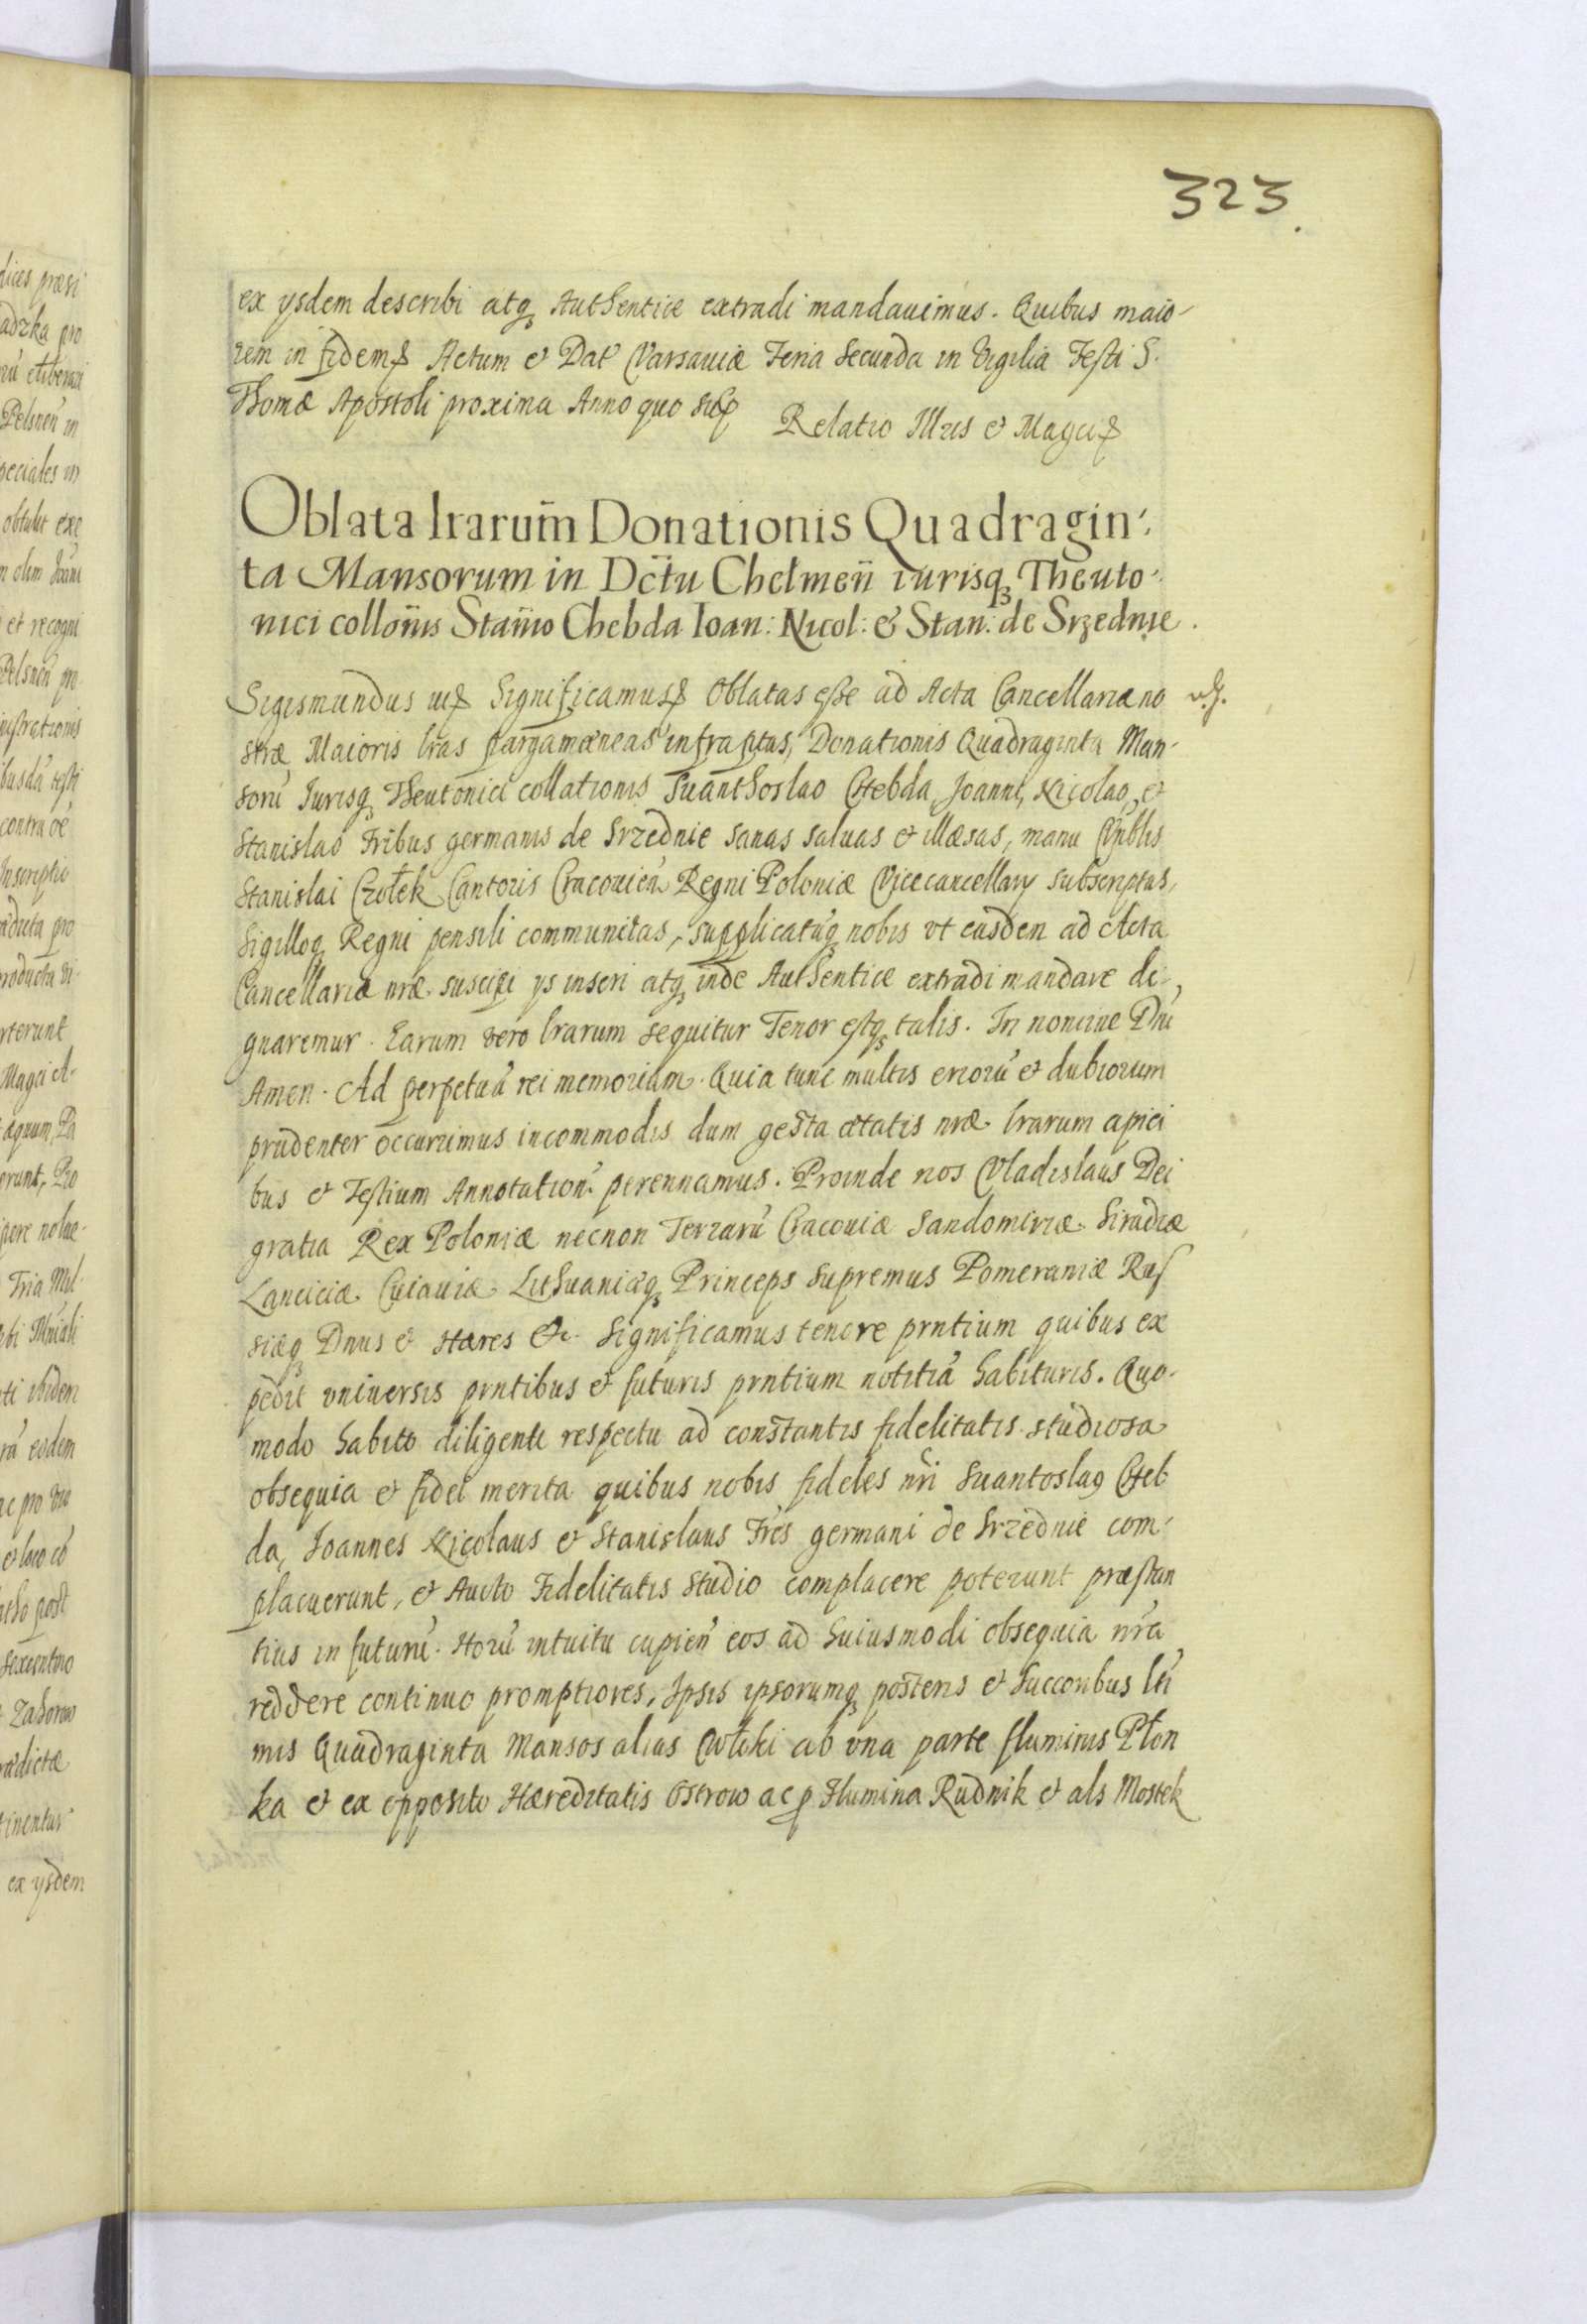 323.
ex ysdem describi atq₃ Authentice extradi mandavimus. Quibus maio-
rem in fidem Actum et Dat Varsaviæ Feria Secunda in Vigilia Festi S.
Thomæ Apostoli proxima Anno quo sup
Relatio Illris et Magci
Oblata lrarum̄ Donationis Quadragin-
ta Mansorum in Dc̄tu Chelmen̄ iurisq₃ Theuto-
nici collon̄is Stan̄io Chebda Ioan: Nicol: & Stan: de Srzednie.
Sigismundus Significamus Oblatas esse ad Acta Cancellariæ no
stræ Maioris lras pargamæneas infraptas, Donationis Quadraginta Man-
sorū Iurisq₃ Theutonici collationis Suanthoslao Chebda, Joanni, Nicolao, et
Stanislao Fribus germanis de Srzednie sanas salvas et illæsas, manu
Stanislai Czołek Cantoris Cracovien̄ Regni Poloniæ Vicecancellary subscriptas,
Sigilloq₃ Regni pensili communitas, supplicatūq₃ nobis vt easdem ad Acta
Cancellariæ nræ suscipi ys inseri atq₃ inde Authentice extradi mandare di-
gnaremur. Earum vero lrarum sequitur Tenor estq₃ talis. In nomine Dni
Amen. Ad perpetuā rei memoriam. Quia tunc multis erorū et dubiorum
prudenter occurrimus incommodis dum gesta ætatis nræ lrarum apici
bus et Testium Annotation̄ perennamus. Proinde nos Vladislaus Dei
gratia Rex Poloniæ necnon Terrarū Cracoviæ Sandomiriæ Siradiæ
Lanciciæ Cuiaviæ Lithuaniæq₃ Princeps Supremus Pomeraniæ Rus
siæq₃ Dnus et Hæres &c. Significamus tenore prntium quibus ex
pedit vniversis prntibus et futuris prntium notitiā habituris. Quo-
modo habito diligenti respectu ad constantis fidelitatis studiosa
obsequia et fidei merita quibus nobis fideles nr̄i Suantoslaus Cheb
da, Joannes Nicolaus et Stanislaus Fr̄es germani de Srzednie com-
placuerunt, et Aucto Fidelitatis Studio complacere poterunt præstan
tius in futurū. Horū intuitu cupien̄ eos ad huiusmodi obsequia nr̄a
reddere continuo promptiores, Ipsis ipsorumq₃ posteris et Succoribus lti
mis Quadraginta Mansos alias Włoki ab una parte fluminis Płon
ka et ex opposito Hæreditatis Ostrow ac p Flumina Rudnik et als Mostek